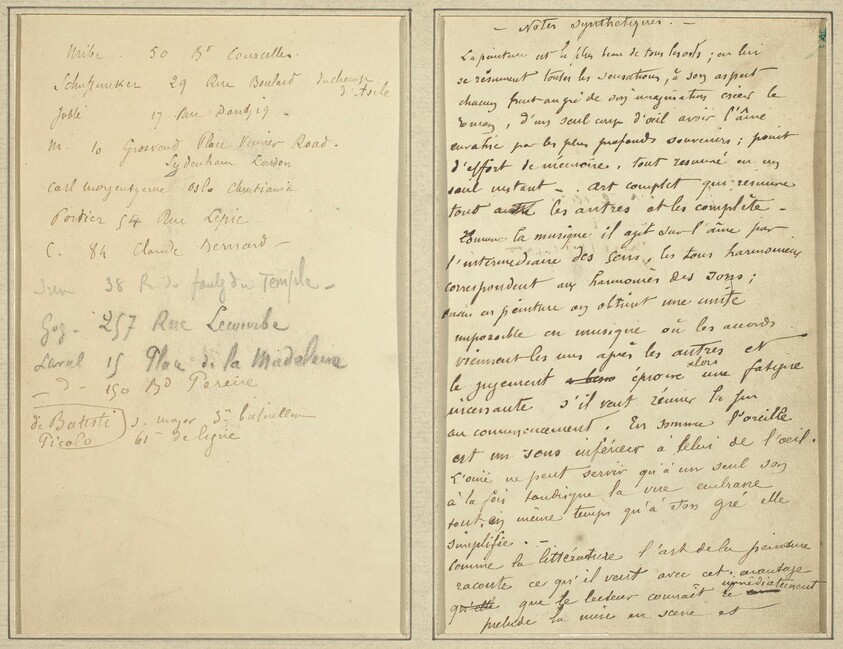 Uribe . 50 Bd Courcelles.
Schuffnecker 29 Rue Boulard
d'Asile
Jobbé 17 Rue Dantzig -
M. 10 Grosvenor Place Venner Road.
Sydenham London
Carl Oslo Christiania
Portier 54 Rue Lepic
C. 84 Claude Bernard -
38 R. du Temple -
Gog - 257 Rue Lecourbe
Laval 15 Place de la Madeleine
- d - 150 Bd Pereire
de Batisti s. major 5me bataillon
Picolo 61e de ligne
- Notes Synthétiques. -
La peinture est le plus beau de tous les arts ; en lui
se résument toutes les sensations, à son aspect
chacun peut au gré de son imagination créer le
roman, d'un seul coup d'œil avoir l'âme
envahie par les plus profonds souvenirs ; point
d'effort de mémoire, tout résumé en un
seul instant -. Art complet qui résume
tout les autres et les complète -
Comme la musique il agit sur l'âme par
l'intermédiaire des sens, les tons harmonieux
correspondent aux harmonies des sons ;
mais en peinture on obtient une unité
impossible en musique où les accords
viennent les uns après les autres et
le jugement éprouve alors une fatigue
incessante s'il veut réunir la fin
au commencement. En somme l'oreille
est un sens inférieur à celui de l'œil.
L'ouïe ne peut servir qu'à un seul son
à la fois tandisque la vue embrasse
tout, en même temps qu'à son gré elle
simplifie. -
Comme la littérature l'art de la peinture
raconte ce qu'il veut avec cet avantage
que le lecteur connaît immédiatement le
prélude la mise en scène et